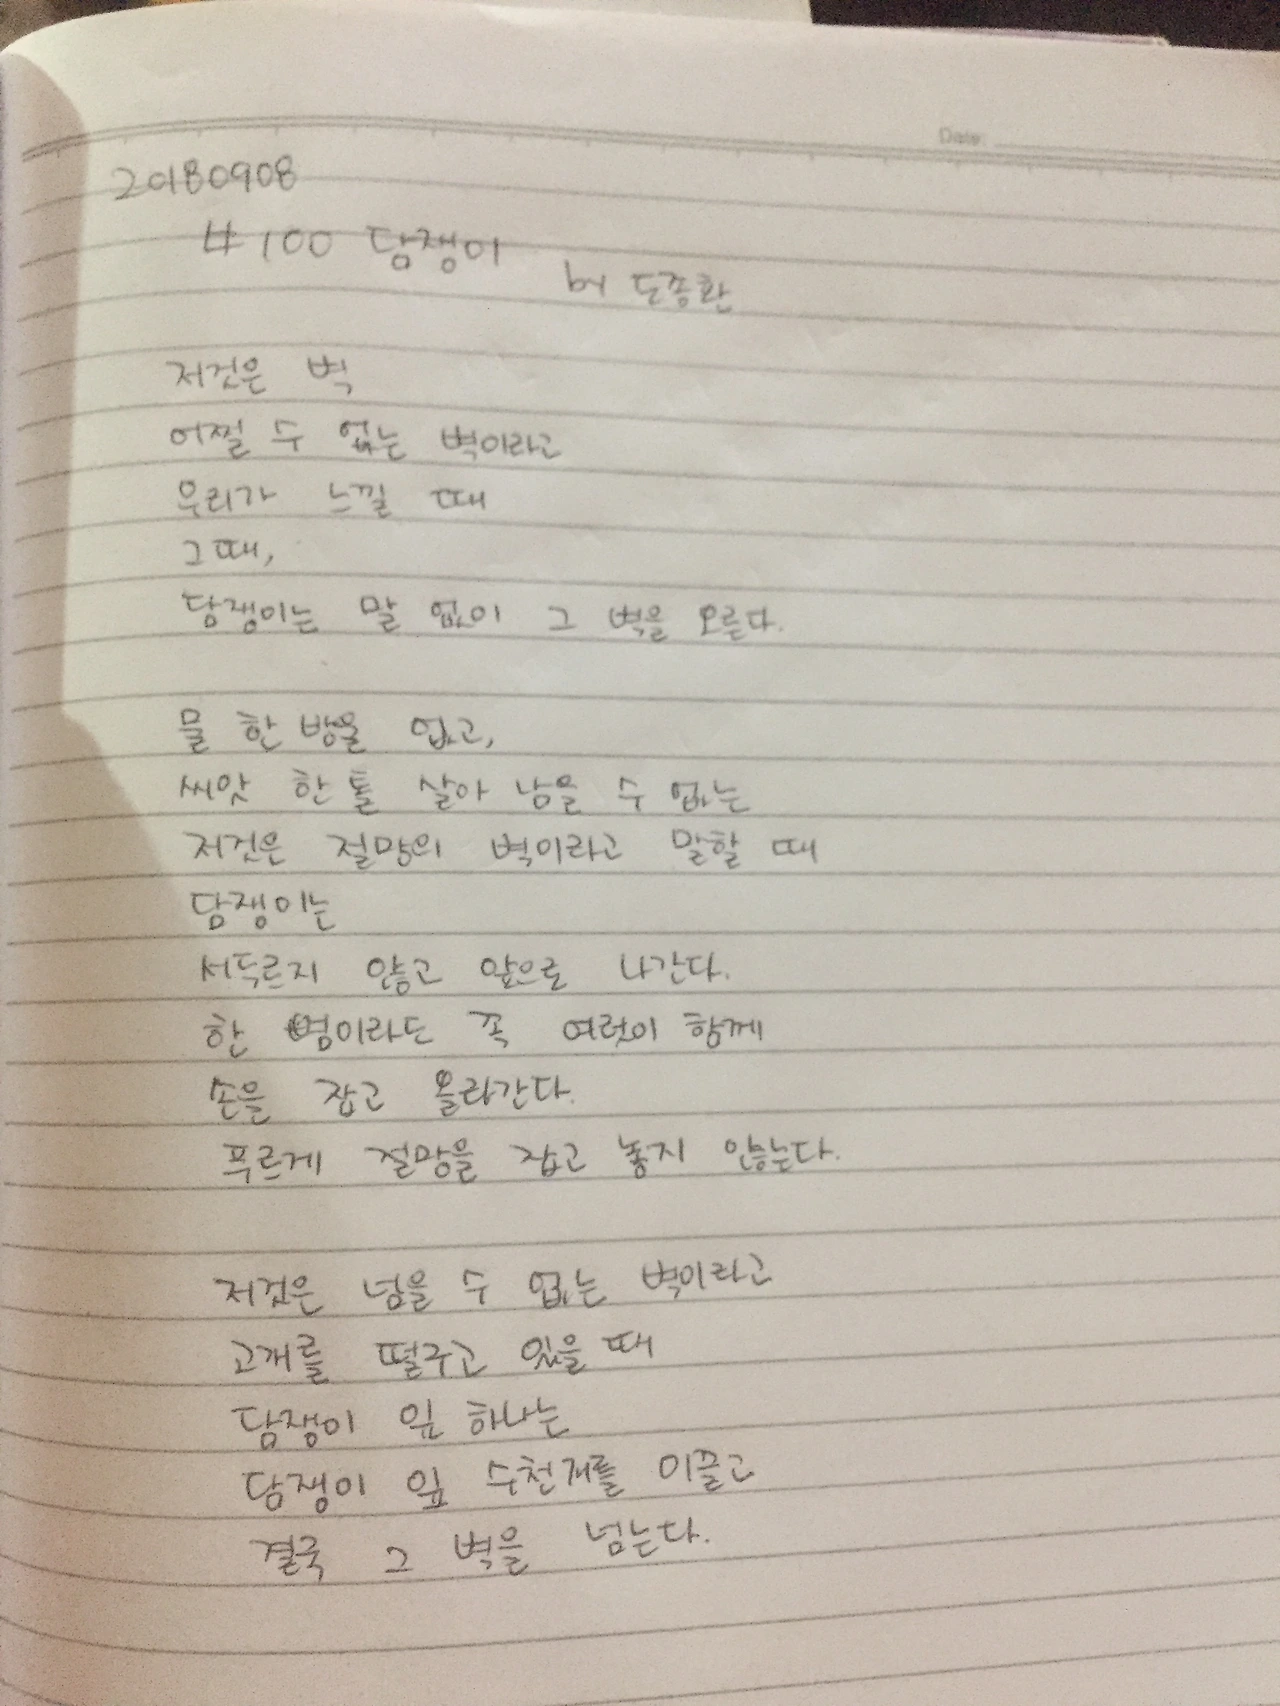 Date:
20180908
#100 담쟁이
by 도종환
저것은 벽
어쩔 수 없는 벽이라고
우리가 느낄 때
그때,
담쟁이는 말 없이 그 벽을 오른다.
물 한 방울 없고,
씨앗 한 톨 살아 남을 수 없는
저것은 절망의 벽이라고 말할 때
담쟁이는
서두르지 않고 앞으로 나간다.
한 뼘이라도 꼭 여럿이 함께
손을 잡고 올라간다.
푸르게 절망을 잡고 놓지 않는다.
저것은 넘을 수 없는 벽이라고
고개를 떨구고 있을 때
담쟁이 잎 하나는
담쟁이 잎 수천개를 이끌고
결국 그 벽을 넘는다.